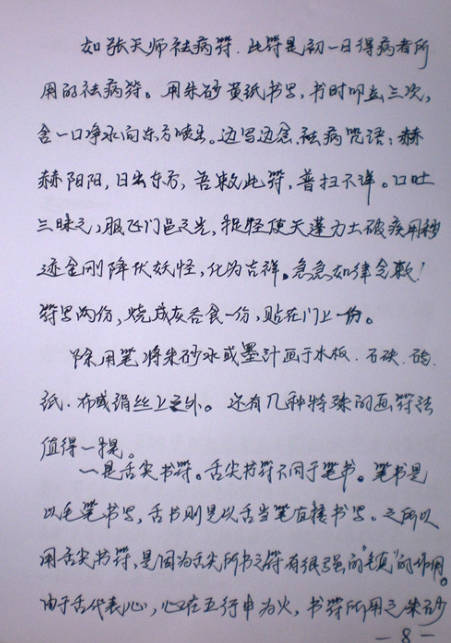 如张天师祛病符.此符是初一日得病者所
用的祛病符。用朱砂黄纸书写,书时叩齿三次,
含一口净水向东方喷出。边写边念祛病咒语:赫
赫阳阳,日出东方,吾敕此符,普扫不祥。口吐
三昧之火,服飞门邑之光,捉怪使天蓬力士破疾用秽
迹金刚降伏妖怪,化为吉祥。急急如律令敕!
符写两份,烧成灰吞食一份,贴在门上一份。
除用笔将朱砂水或墨汁画于木板.石砆.砖.
纸.布或绢丝上之外。还有几种特殊的画符法
值得一提。
一是舌尖书符。舌尖书符不同于笔书。笔书是
以毛笔书写,舌书则是以舌当笔直接书写。之所以
用舌尖书符,是因为舌尖所书之符有很强的"镇"的作用。
由于舌代表心,心在五行中为火,书符所用之朱砂
— 8 —